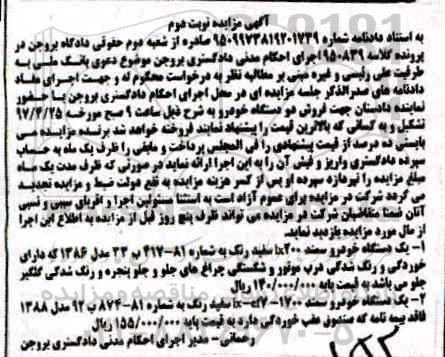 آگهی مزایده نوبت دوم
به استناد دادنامه شماره ۹۵۰۹۹۷۳۸۱۹۲۰۱۷۳۹ صادره از شعبه دوم حقوقی دادگاه بروجن در
پرونده کلاسه ۹۵۰۸۳۹ اجرای احکام مدنی دادگستری بروجن موضوع دعوی بانک ملی به
طرفیت علی رئیسی و غیره مبنی بر مطالبه نظر به درخواست محکوم له و جهت اجرای مفاد
دادنامه های صدرالذکر جلسه مزایده ای در محل اجرای احکام دادگستری بروجن با حضور
نماینده دادستان جهت فروش دو دستگاه خودرو به شرح ذیل ساعت ۹ صبح مورخه ۹۷/۴/۲۵
تشکیل و به کسانی که بالاترین قیمت را پیشنهاد نمایند فروخته خواهد شد برنده مزایده می
بایستی ده درصد از قیمت پیشنهادی را فی المجلس پرداخت و مابقی را ظرف یک ماه به حساب
سپرده دادگستری واریز و فیش آن را به این اجرا ارائه نماید در صورتی که ظرف مدت یک ماه
مبلغ مزایده را نپردازد سپرده او پس از کسر هزینه مزایده به نفع دولت ضبط و مزایده تجدید
می گردد شرکت در مزایده برای عموم آزاد است به استثنا مسئولین اجرا و اقربای سببی و نسبی
آنان ضمنا متقاضیان شرکت در مزایده می تواند ظرف پنج روز قبل از مزایده به اطلاع این اجرا
از مال مورد مزایده بازدید نماید.
۱- یک دستگاه خودرو سمند lx۲۰۰ سفید رنگ به شماره ۸۱-۴۱۷ ب ۳۳ مدل ۱۳۸۶ که دارای
خوردگی و رنگ شدگی درب موتور و شکستگی چراغ های جلو و جلو پنجره و رنگ شدگی گلگیر
جلو می باشد به قیمت پایه ۱۴۰/۰۰۰/۰۰۰ ریال
۲- یک دستگاه خودرو سمند lx-ef۷-۱۷۰۰ سفید رنگ به شماره ۸۱-۸۷۴ ب ۹۲ مدل ۱۳۸۸
فاقد بیمه نامه که صندوق عقب خوردگی دارد به قیمت پایه ۱۵۵/۰۰۰/۰۰۰ ریال
رحمانی - مدیر اجرای احکام مدنی دادگستری بروجن